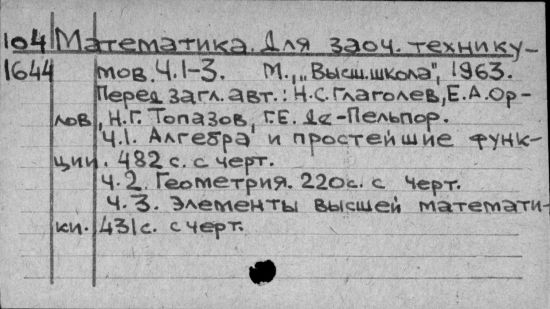 104 Математика. Для заоч. технику-
1644 мов. Ч.1-3. М., „Высш.школа", 1963.
Перед загл. авт.: Н.С.Глаголев, Е.А.Ор-
лов, Н.Г. Топазов, Г.Е. Де-Пельпор.
Ч.1. Алгебра и простейшие функ-
ции. 482 с. с черт.
Ч.2. Геометрия. 220с. с черт.
Ч.3. Элементы высшей математи-
ки. 431с. с черт.